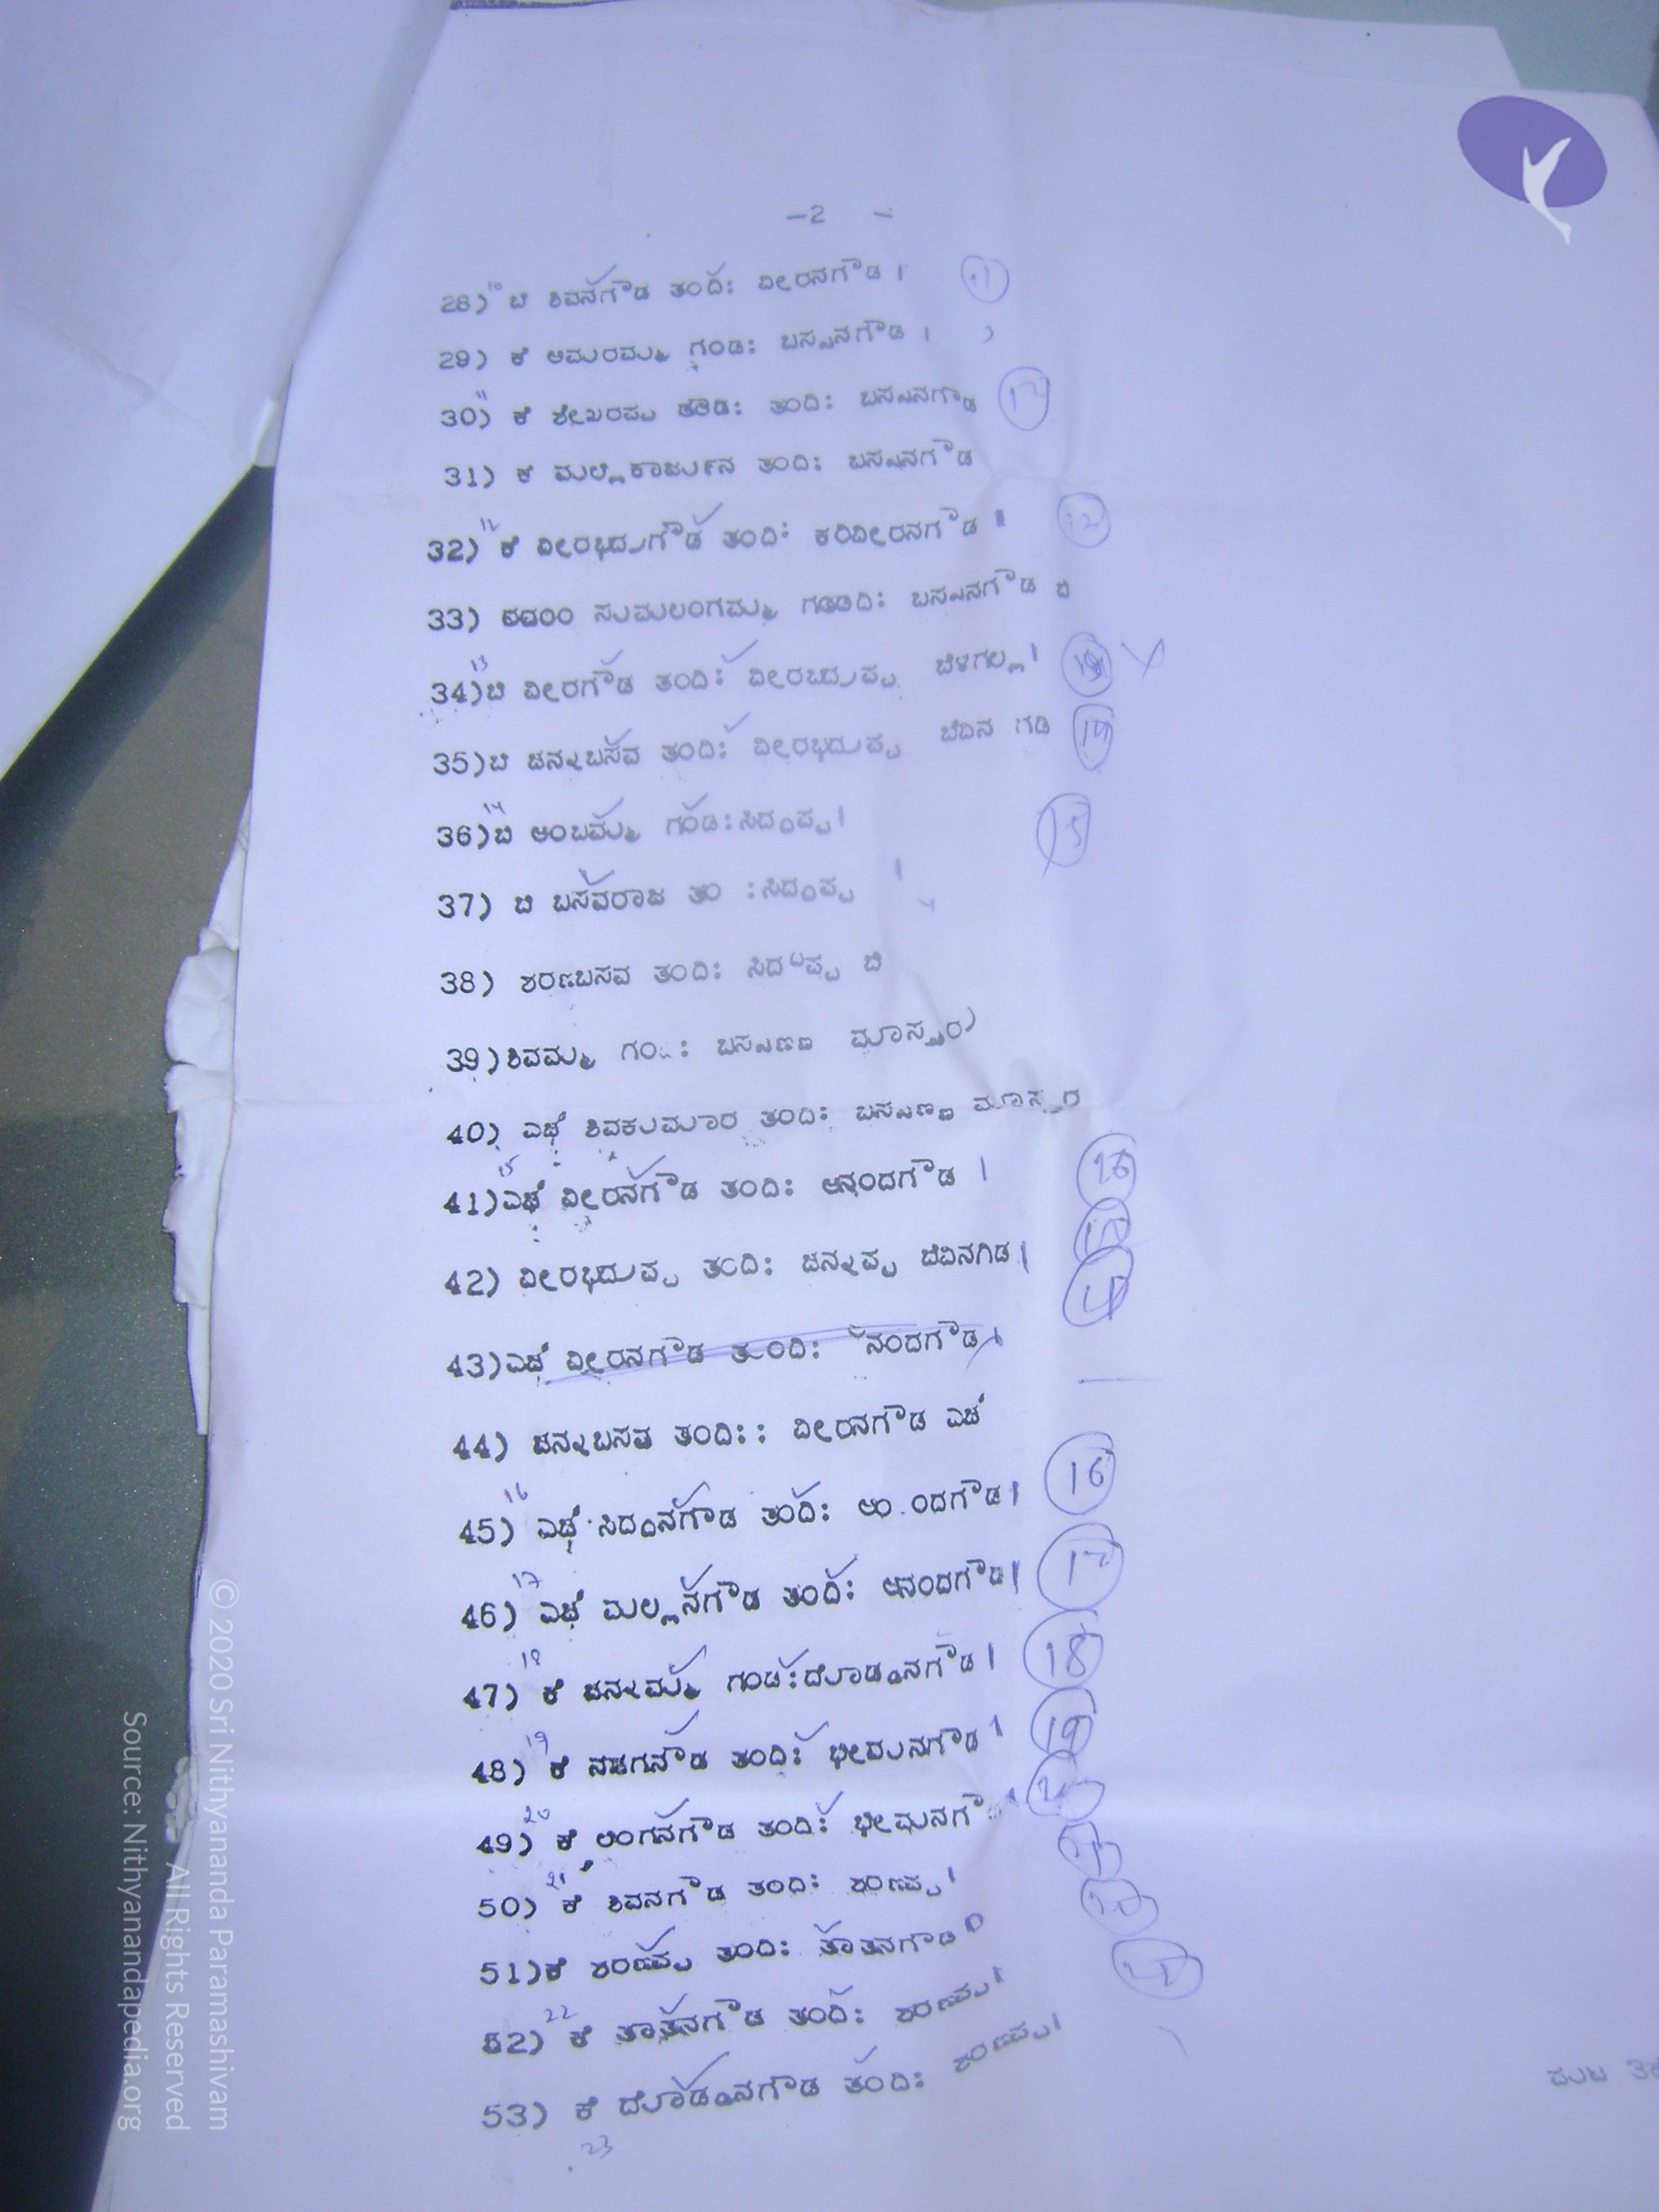 -2 -
28) ಬಿ ಶಿವನಗೌಡ ತಂದೆ: ವೀರನಗೌಡ
29) ಕೆ ಅಮರಮ್ಮ ಗಂಡ: ಬಸ್ಸನಗೌಡ
30) ಕೆ ಶೇಖರಪ್ಪ ತಂದಿ: ಬಸ್ಸನಗೌಡ
31) ಕೆ ಮಲ್ಲಿಕಾರ್ಜುನ ತಂದಿ: ಬಸ್ಸನಗೌಡ
32) ಕೆ ವೀರಭದ್ರಗೌಡ ತಂದಿ: ಕರಿವೀರನಗೌಡ
33) ಬಸ್ಸನಗೌಡ ಬಿ
34) ಬಿ ವೀರಗೌಡ ತಂದಿ: ವೀರಬದ್ರಪ್ಪ ಬೆಳಗಲ್ಲ
35) ಬಿ ಚನ್ನಬಸವ ತಂದಿ: ವೀರಭದ್ರಪ್ಪ ಬೆವಿನ ಗಡಿ
36) ಬಿ ಅಂಬಮ್ಮ ಗಂಡ: ಸಿದ್ದಪ್ಪ
37) ಬಿ ಬಸವರಾಜ ತಂ : ಸಿದ್ದಪ್ಪ
38) ಶರಣಬಸವ ತಂದಿ: ಸಿದ್ದಪ್ಪ ಬಿ
39) ಶಿವಮ್ಮ ಬಸ್ಸಣ್ಣ ಮಾಸ್ತರ
40) ಎಚ್ ಶಿವಕುಮಾರ ತಂದಿ: ಬಸ್ಸಣ್ಣ ಮಾಸ್ತರ
41) ಎಚ್ ವೀರನಗೌಡ ತಂದಿ: ಆನಂದಗೌಡ
42) ವೀರಭದ್ರಪ್ಪ ತಂದಿ: ಚನ್ನಪ್ಪ ಬೆವಿನಗಿಡ
43) ಎಚ್ ವೀರನಗೌಡ ತಂದಿ:
44) ಚನ್ನಬಸವ ತಂದಿ:: ವೀರನಗೌಡ ಎಚ್
45) ಎಚ್ ಸಿದ್ದನಗೌಡ ತಂದಿ:
46) ಎಚ್ ಮಲ್ಲನಗೌಡ ತಂದಿ: ಆನಂದಗೌಡ
47) ಕೆ ಚನ್ನಮ್ಮ ಗಂಡ: ದೊಡ್ಡನಗೌಡ
48) ಕೆ ತಂದಿ: ಭೀಮನಗೌಡ
49) ಕೆ ಲಿಂಗನಗೌಡ ತಂದಿ:
50) ಕೆ ಶಿವನಗೌಡ ತಂದಿ: ಶರಣಪ್ಪ
51) ಕೆ ಶರಣಪ್ಪ ತಂದಿ: ತಾತನಗೌಡ
52) ಕೆ ತಾತನಗೌಡ ತಂದಿ: ಶರಣಪ್ಪ
53) ಕೆ ದೊಡ್ಡನಗೌಡ ತಂದಿ: ಶರಣಪ್ಪ
16
17
18
19
23
ಪುಟ
© 2020 Sri Nithyananda Paramashivam
All Rights Reserved
Source: Nithyanandapedia.org